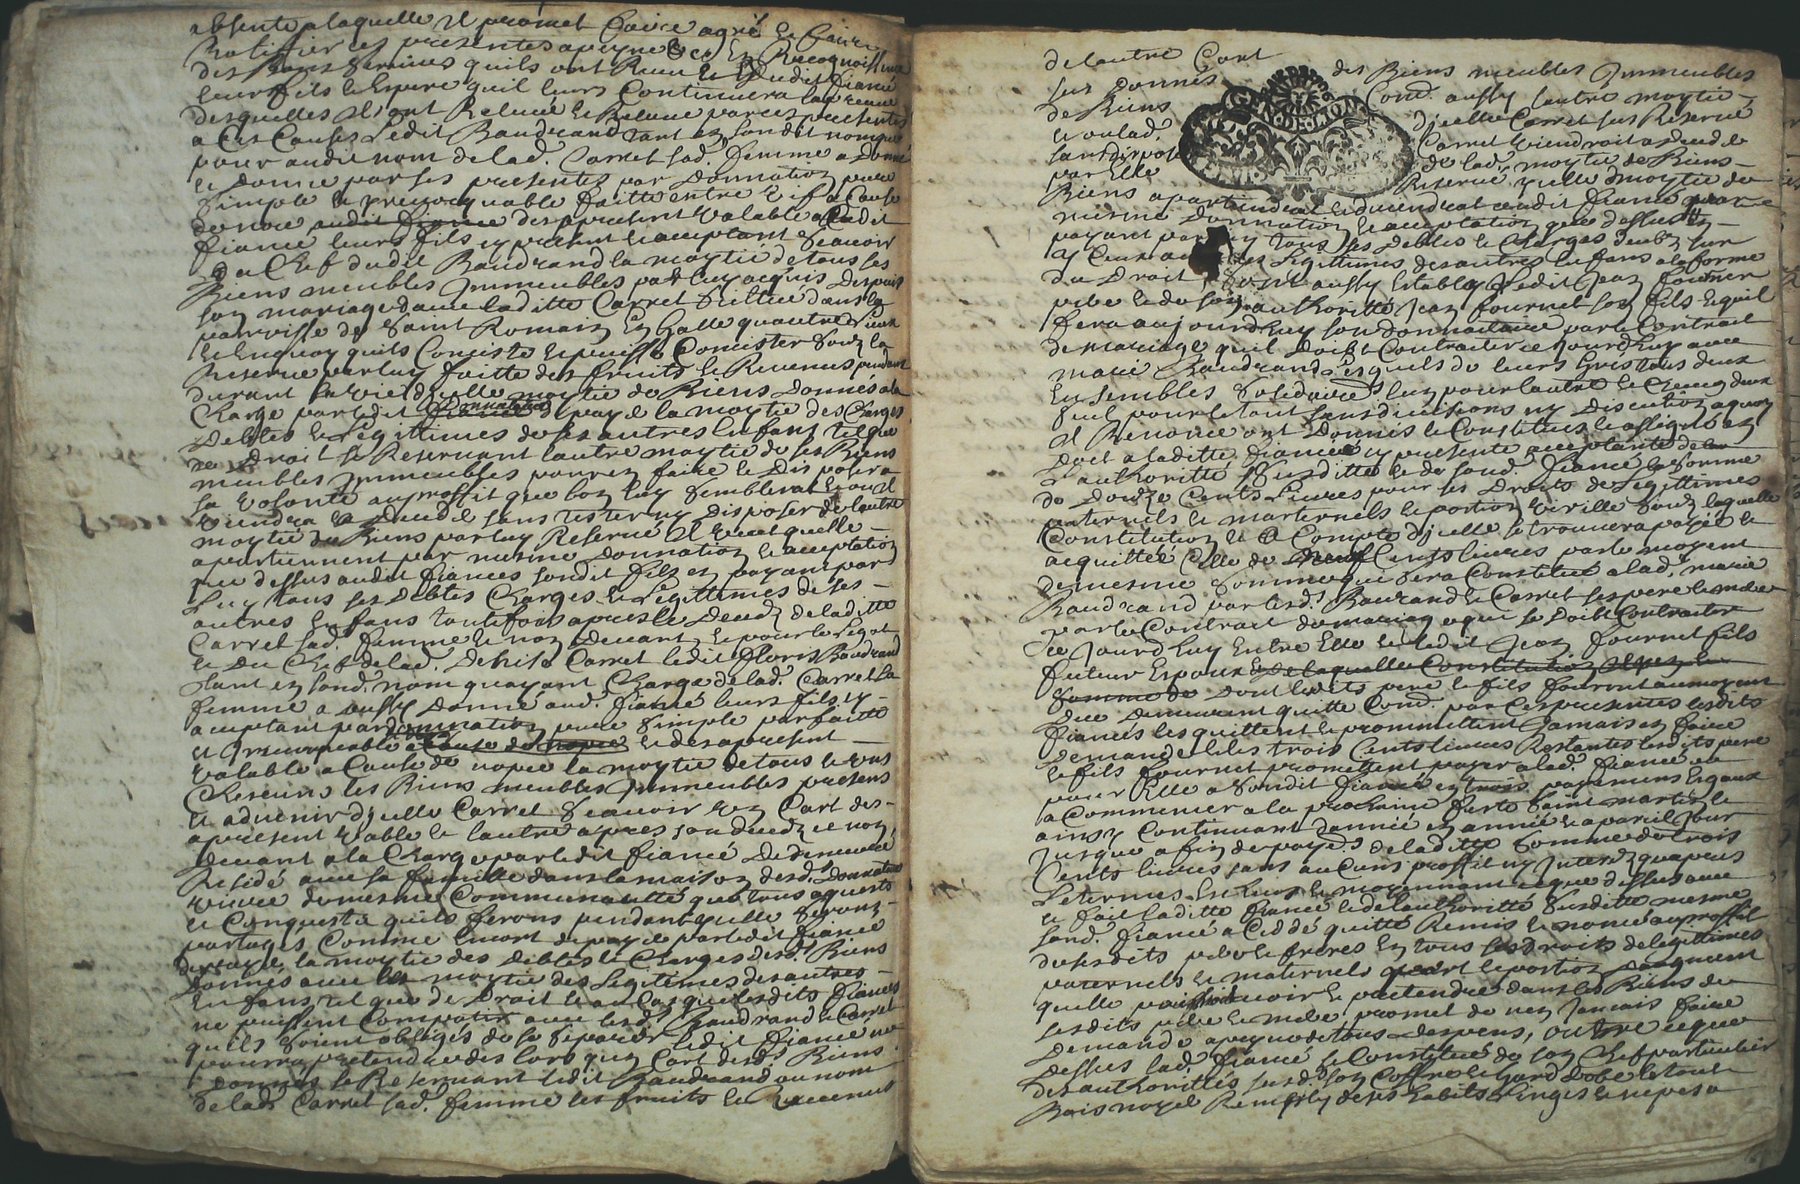 absente a laquelle il promet faire agréé et faire
Ratiffier ces presentes a peyne &c En Recognoissance
des Bons services quils ont Receu dudit fiancé
leur fils et Espere quil leurs Continuera la preuve
desquelles ils ont Relevé et Releve par ces presentes
a Ces Causes Ledit Baudrand tant en son dit nom que
pour audit nom de lad. Carret sad. femme a Donné
et Donne par ses presentes par Donnation pure
simple et irrevocquable faitte entre vifs a Cause
de noce audit fiancé des apresent valable audit
fiancé leurs fils icy present et acceptant scavoir
du Chef dudit Baudrand la moytié de tous ses
Biens meubles Immeubles par luy acquis despuis
son mariage avec laditte Carret scittué dans la
parroisse de Saint Romain En Galle
et Enquoy quils Consiste et puisse Consister souz la
Reserve par luy faitte des fruits et Revenus pendant
durant sa vie dicelle moytié de Biens Donnés a la
Charge par ledit donnataire de payé la moytié des Charges
Debtes et Legittimes de ses autres Enfans tel que
de Droit se Reservant lautre moytié de ses Biens
meubles Immeubles pour en faire et Disposer a
sa volonté au proffit que bon luy semblera et ou il
viendra a deceder sans tester ny disposer de lautre
moytié de Biens par luy Reservé Il veut quelle
apartiennent par mesme donnation et acceptation
que dessus audit fiancés sondit fils en payant par
Luy tous ses Debtes Charges et Legittimes de ses
autres Enfans toutefois apres le Deced de laditte
Carret sad. femme et non Devant et pour le Regard
et Du Chef de lad. Denise Carret ledit Floris Baudrand
tant en sond. nom quayant Charge de lad. Carret sa
femme a aussy Donné aud. fiancé leurs fils icy
acceptant par donnation pure simple parfaitte
et Irrevocquable a Cause de nopce et des apresent
valable a Cause de nopce la moytié de tous et uns
Chescuns ses Biens meubles Immeubles presens
et advenir dicelle Carret scavoir un Cart des
apresent vable et lautre apres son decedz et non
devant a la Charge par ledit fiancé de demeurer
Residé avec sa famille dans la maison desd. Donnateurs
vivre de mesme Communauté que tous acquests
et Conqueste quils ferons pendant icelle serons
partagés Comme aussy de payé par ledit fiancé
de payé la moytié des debtes et Charges desd. Biens
Donnés avec la moytié des Legitimes des autres
Enfans tel que de Droit et au Cas que lesdits fiancés
ne puissent Compatir avec lesd. Baudrand et Carret
quils soient obligés de se separer ledit fiancé ne
pourra pretendre des lors qun Cart desd. Biens
donnés se Reservant ledit Baudrand au nom
de lad. Carret sad. femme les fruits et Revenus
de lautre Cart des Biens meubles Immeubles
sus Donnés Comme aussy lautre moytié
de Biens dicelle Carret sus Reservé
et ou lad. Carret viendroit a deced de
sans disposé de lad. moytié de Biens
par Elle Reservé icelle moytié de
Biens apartiendroit et deviendroit audit fiancé par
mesme donnation et acceptation que dessus En
payant par luy tous ses Debtes et Charges deubz sur
Iceux les Legittimes des autres Enfans a la forme
du Droit aussy Estably Ledit Jean fournet
pere et de son authoritté Jean fournet son fils lequel
sera aujourdhuy son donnataire par le Contrait
de mariage quil Doibt Contracter ce jourdhuy avec
marie Baudrand lesquels de leurs gré tous deux
Ensembles solidaire lun pour lautre et Chescung deux
seul pour le tout sans divisions ny Discution a quoy
Il Renonce ont Donnés et Constitués et assignés en
Doct a laditte fiancé icy presente acceptante de
lauthoritté susditte et de sond. fiancé la somme
de Douze Cents Livres pour ses Droits de Legittimes
paternels et maternels et portion virille souz laquelle
Constitution et a Compte dicelle se trouvera payée et
acquittée Celle de neuf Cents livres par le moyent
de mesme somme qui sera Constitué a lad. marie
Baudrand par lesd. Baudrand et Carret ses pere et mere
par le Contrait de mariage qui se doibt Contracter
ce Jourdhuy Entre Elle et ledit Jean fournet fils
futeur Espoux de laquelle Constitution
somme de dont lesdits pere et fils fournet au moyent
Dece Demeurent quitte Comme par Ces presentes lesdits
fiancés les quittent et promettent Jamais en faire
demande et les trois Cents livres Restantes lesdits pere
et fils fournet promettent payer a lad. fiancé ou
pour Elle a sondit fiancé en trois payemens Egaux
a Commencer a la prochaine feste Saint martin et
ainsy Continuant d'année en année a pareil Jour
Jusque a fin de paye de laditte somme de trois
Cents livres sans aucuns proffit ny Interetz quapres
Leternes Escheus et moyennant ce que dessus avec
Ce fait laditte fiancé et de lauthoritté susditte mesme
sond. fiancé a Ceddé quitté Remis et noncé au proffit
de ses dits pere et freres En tous ses droits de legittimes
paternels et maternels part et portion
quelle pouroit avoir et pretendre dans les Biens de
ses dits pere et mere promet de nen Jamais faire
Demande a peyne de tous despens, outre ce que
Dessus lad. fiancé se Constitue de son Chef particulier
des authorittés susd. son Coffre et Gard Robe le tout
Bois noyer Remply de ses habits Linges et